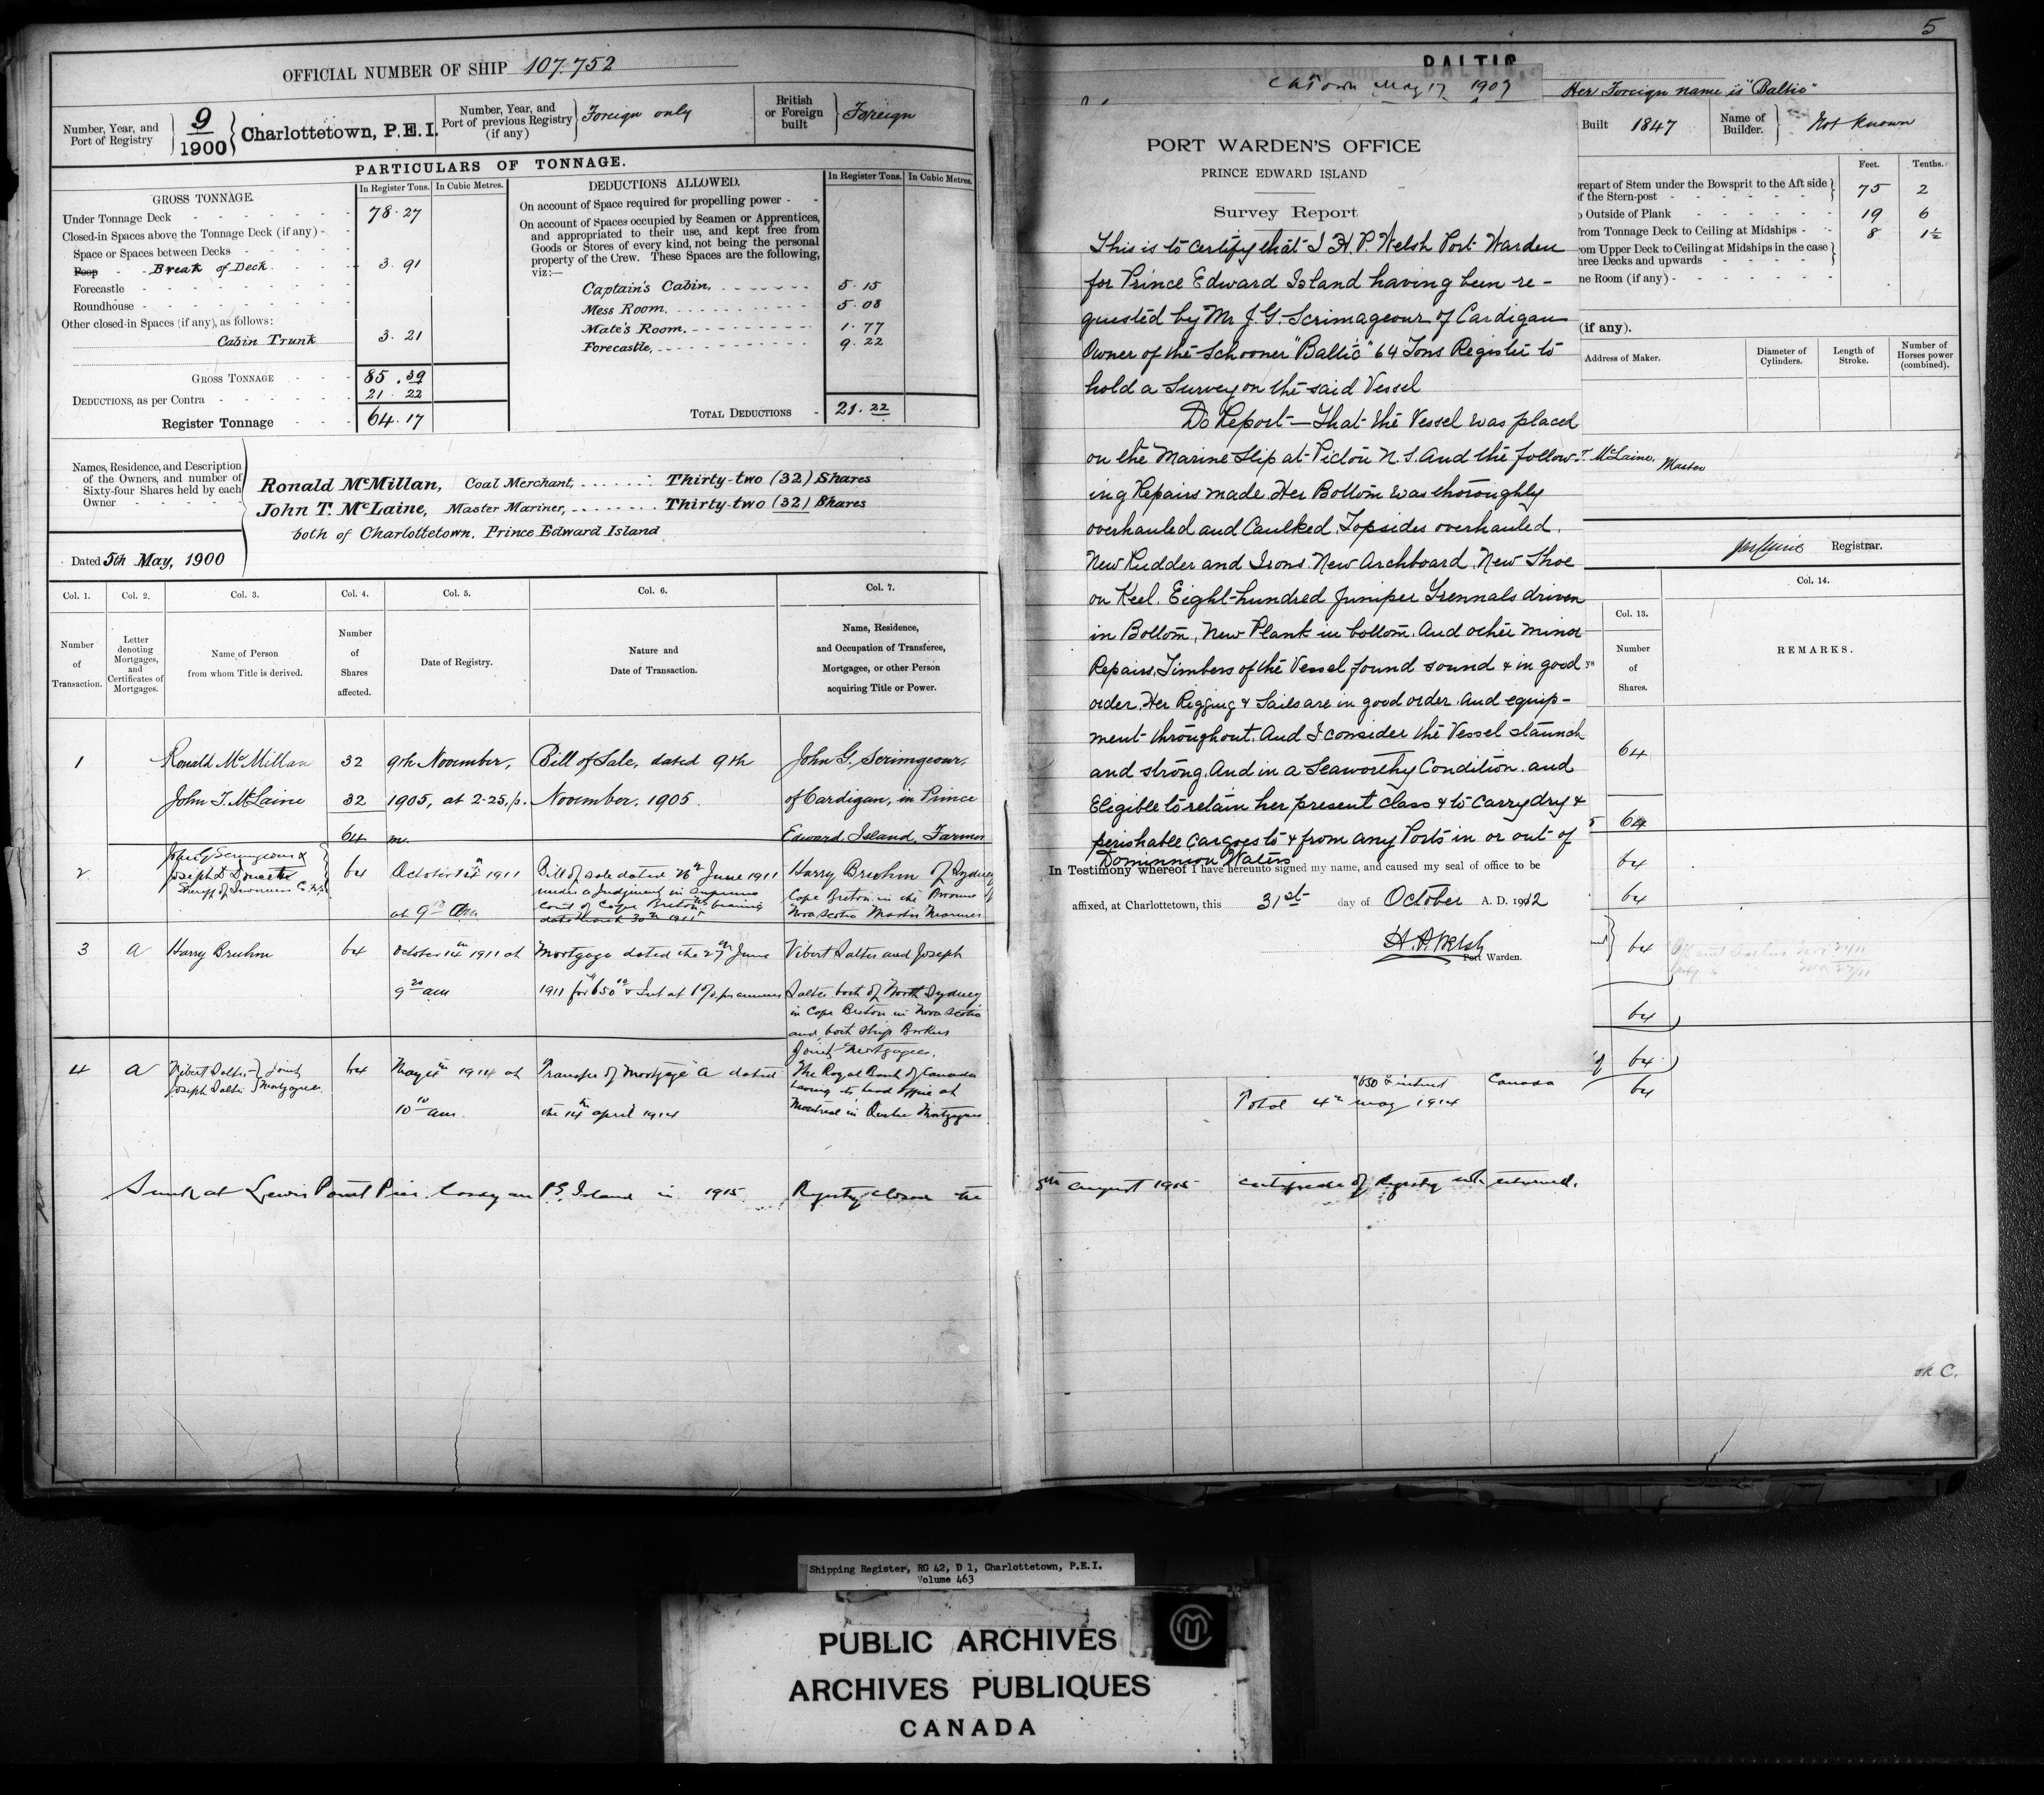 OFFICIAL NUMBER OF SHIP 107.752
Number, Year, and
Port of Registry
9
1900
Charlottetown, P.E.I.
Number, Year, and
Port of previous Registry
(if any)
Foreign only
British
or Foreign
built
Foreign
PARTICULARS OF TONNAGE.
GROSS TONNAGE.
In Register Tons.
In Cubic Metres.
Under Tonnage Deck 78.27
Closed-in Spaces above the Tonnage Deck (if any)
Space or Spaces between Decks
Poop Break of Deck 3.91
Forecastle
Roundhouse
Other closed-in Spaces (if any), as follows:
Cabin Trunk 3.21
GROSS TONNAGE 85.39
DEDUCTIONS, as per Contra 21 22
Register Tonnage 64.17
DEDUCTIONS ALLOWED.
In Register Tons.
In Cubic Metres.
On account of Space required for propelling power
On account of Spaces occupied by Seamen or Apprentices,
and appropriated to their use, and kept free from
Goods or Stores of every kind, not being the personal
property of the Crew. These Spaces are the following,
viz:—
Captain's Cabin, 5.15
Mess Room. 5.08
Mate's Room. 1.77
Forecastle, 9.22
TOTAL DEDUCTIONS 21.22
Names, Residence, and Description
of the Owners, and number of
Sixty-four Shares held by each
Owner
Ronald McMillan, Coal Merchant, Thirty-two (32) Shares
John T. McLaine, Master Mariner, Thirty-two (32) Shares
both of Charlottetown, Prince Edward Island
Dated 5th May, 1900
Col. 1.
Number
of
Transaction.
Col. 2.
Letter
denoting
Mortgages,
and
Certificates of
Mortgages.
Col. 3.
Name of Person
from whom Title is derived.
Col. 4.
Number
of
Shares
affected.
Col. 5.
Date of Registry.
Col. 6.
Nature and
Date of Transaction.
Col. 7.
Name, Residence,
and Occupation of Transferee,
Mortgagee, or other Person
acquiring Title or Power.
1 Ronald McMillan 32 9th November, Bill of Sale, dated 9th John G. Scrimgeour,
John T. McLaine 32 1905, at 2-25, p. November, 1905. of Cardigan, in Prince
64 m. Edward Island, Farmer
2 John G Scrimgeour & 64 October 14th 1911 Bill of sale dated 26th June 1911 Harry Bruhm of Sydney
Joseph D
Sheriff of Inverness C.
under a Judgment in Supreme Cape Breton in the Province of
at 9 am
Court of Cape Breton Nova Scotia Master Mariner
3 A Harry Bruhm 64 October 14th 1911 at Mortgage dated the 27th June Vibert Salter and Joseph
9 20 am 1911 for 650 & Int at per annum Salter both of North Sydney
in Cape Breton in Nova Scotia
and both Ship Brokers
Joint Mortgagees.
4 A Vibert Salter Joint 64 May 4th 1914 at Transfer of Mortgage "A" dated The Royal Bank of Canada
Joseph Salter Mortgagees
having its head office at
10 10 am the 14th April 1914 Montreal in Quebec Mortgagees
Sunk at Lewis Point Pier P.E. Island in 1915. Registry closed the
5
BALTIC
ChTown May 17 1907
Her Foreign name is "Baltic"
PORT WARDEN'S OFFICE
PRINCE EDWARD ISLAND
Survey Report
This is to certify that I H.P. Welsh Port Warden
for Prince Edward Island having been re-
quested by Mr J. G. Scrimageour of Cardigan
Owner of the Schooner "Baltic" 64 Tons Register to
hold a Survey on the said Vessel
Do Report — That the Vessel was placed
on the Marine Slip at Pictou N.S. And the follow-
ing Repairs made. Her Bottom was thoroughly
overhauled and Caulked. Topsides overhauled.
New Rudder and Irons. New Archboard. New Shoe
on Keel. Eight-hundred Juniper Trennals driven
in Bottom, New Plank in bottom. And other minor
Repairs. Timbers of the Vessel found sound & in good
order. Her Rigging & Sails are in good order. And equip-
ment throughout. And I consider the Vessel staunch
and strong. And in a Seaworthy Condition. and
Eligible to retain her present Class & to Carry dry &
perishable Cargoes to & from any Ports in or out of
Dominnion Waters
In Testimony whereof I have hereunto signed my name, and caused my seal of office to be
affixed, at Charlottetown, this 31st day of October A. D. 1912
H. P. Welsh
Port Warden.
Built 1847
Name of
Builder.
Not Known
Feet. Tenths.
repart of Stem under the Bowsprit to the Aft side
of the Stern-post 75 2
o Outside of Plank 19 6
from Tonnage Deck to Ceiling at Midships 8 1½
rom Upper Deck to Ceiling at Midships in the case
hree Decks and upwards
ne Room (if any)
(if any).
Address of Maker.
Diameter of
Cylinders.
Length of
Stroke.
Number of
Horses power
(combined).
T. McLaine, Master
Registrar.
Col. 13.
Number
of
Shares.
Col. 14.
REMARKS.
64
64
64
64
64
64
64
64
650 & interest Canada
Total 4th May 1914
5th August 1915 Certificate of Registry not returned.
OK C.
Shipping Register, RG 42, D 1, Charlottetown, P.E.I.
Volume 463
PUBLIC ARCHIVES
ARCHIVES PUBLIQUES
CANADA